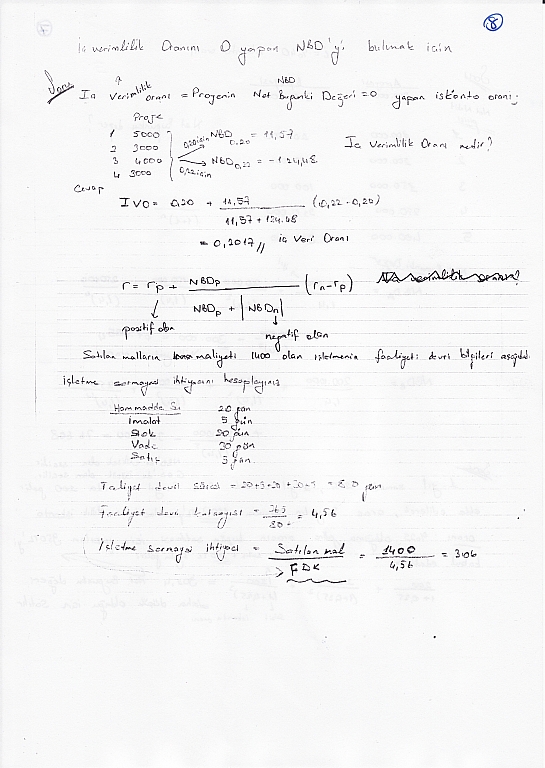 8
İç verimlilik Oranını 0 yapan NBD'yi bulmak için
Soru İç verimlilik oranı = Projenin Net Bugünki Değeri = 0 yapan iskonto oranı;
NBD
Proje
1 5000
2 3000
3 4000
4 3000
0,20 için NBD 0,20 = 11,57
0,22 için NBD 0,22 = -124,48
İç Verimlilik Oranı nedir?
Cevap
IVO = 0,20 + 11,57 / 11,57 + 124.48 (0,22 - 0,20)
= 0,2017 // iç Veri Oranı
r = rp + NBDp / NBDp + |NBDn| (rn - rp)
pozitif olan
negatif olan
Satılan malların maliyeti 1400 olan işletmenin faaliyeti devri bilgileri aşağıda
işletme sermayesi ihtiyacını hesaplayınız
Hammadde Sü 20 gün
imalat 5 gün
Stok 20 gün
Vade 30 gün
Satış 5 gün
Faaliyet devir süresi = 20+5+20+30+5 = 80 gün
Faaliyet devir katsayısı = 365 / 80 = 4,56
İşletme sermayesi ihtiyacı = Satılan mal / FDK = 1400 / 4,56 = 306